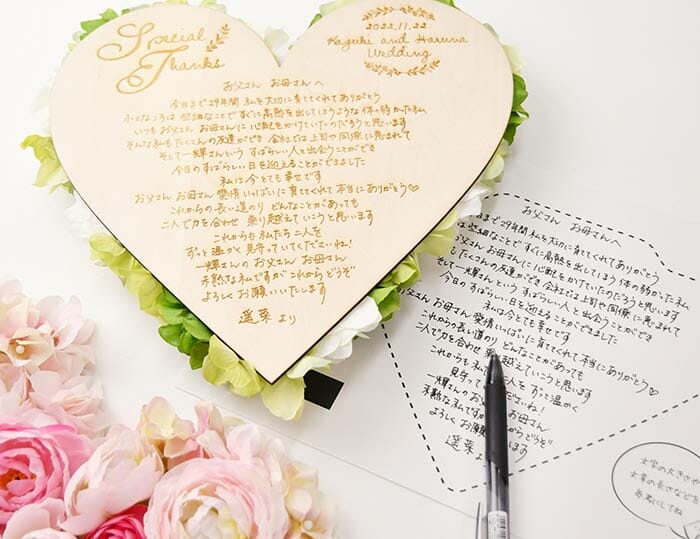 Special
Thanks
2022.11.22
Kazuki and Haruna
Wedding
お父さん お母さんへ
今日まで29年間 私を大切に育ててくれてありがとう
小さなころは 些細なことで すぐに高熱を出してしまうような 体の弱かった私
いつも お父さん お母さんに 心配をかけていたのだろうと思います
そんな私も たくさんの友達ができ 会社では 上司や同僚に恵まれて
そして 一輝さんという すばらしい人と出会うことができ
今日の すばらしい日を迎えることができました
私は 今とても幸せです
お父さん お母さん 愛情いっぱいに 育ててくれて 本当にありがとう♡
これからの長い道のり どんなことがあっても
二人で力を合わせ 乗り越えていこうと思います
これからも 私たち二人を
ずっと温かく 見守っていてくださいね!
一輝さんの お父さん お母さん
未熟な私ですが これから どうぞ
よろしく お願いいたします
遥菜 より
お父さん お母さんへ
日まで29年間 私を大切に育ててくれてありがとう
は 些細なことで すぐに高熱を出してしまうような 体の弱かった私
お父さん お母さんに 心配をかけていたのだろうと思います
たくさんの友達ができ 会社では 上司や同僚に恵まれて
そして 一輝さんという すばらしい人と出会うことができ
今日の すばらしい日を迎えることができました
私は 今とても幸せです
父さん お母さん 愛情いっぱいに 育ててくれて 本当にありがとう♡
これからの長い道のり どんなことがあっても
二人で力を合わせ 乗り越えていこうと思います
これからも 二人を ずっと温かく
見守って ださいね!
一輝さんの お お母さん
未熟な私ですが からどうぞ
よろしく お願 します
遥菜 よ
文字の大きさや
文章の長さなどを
参考にしてね